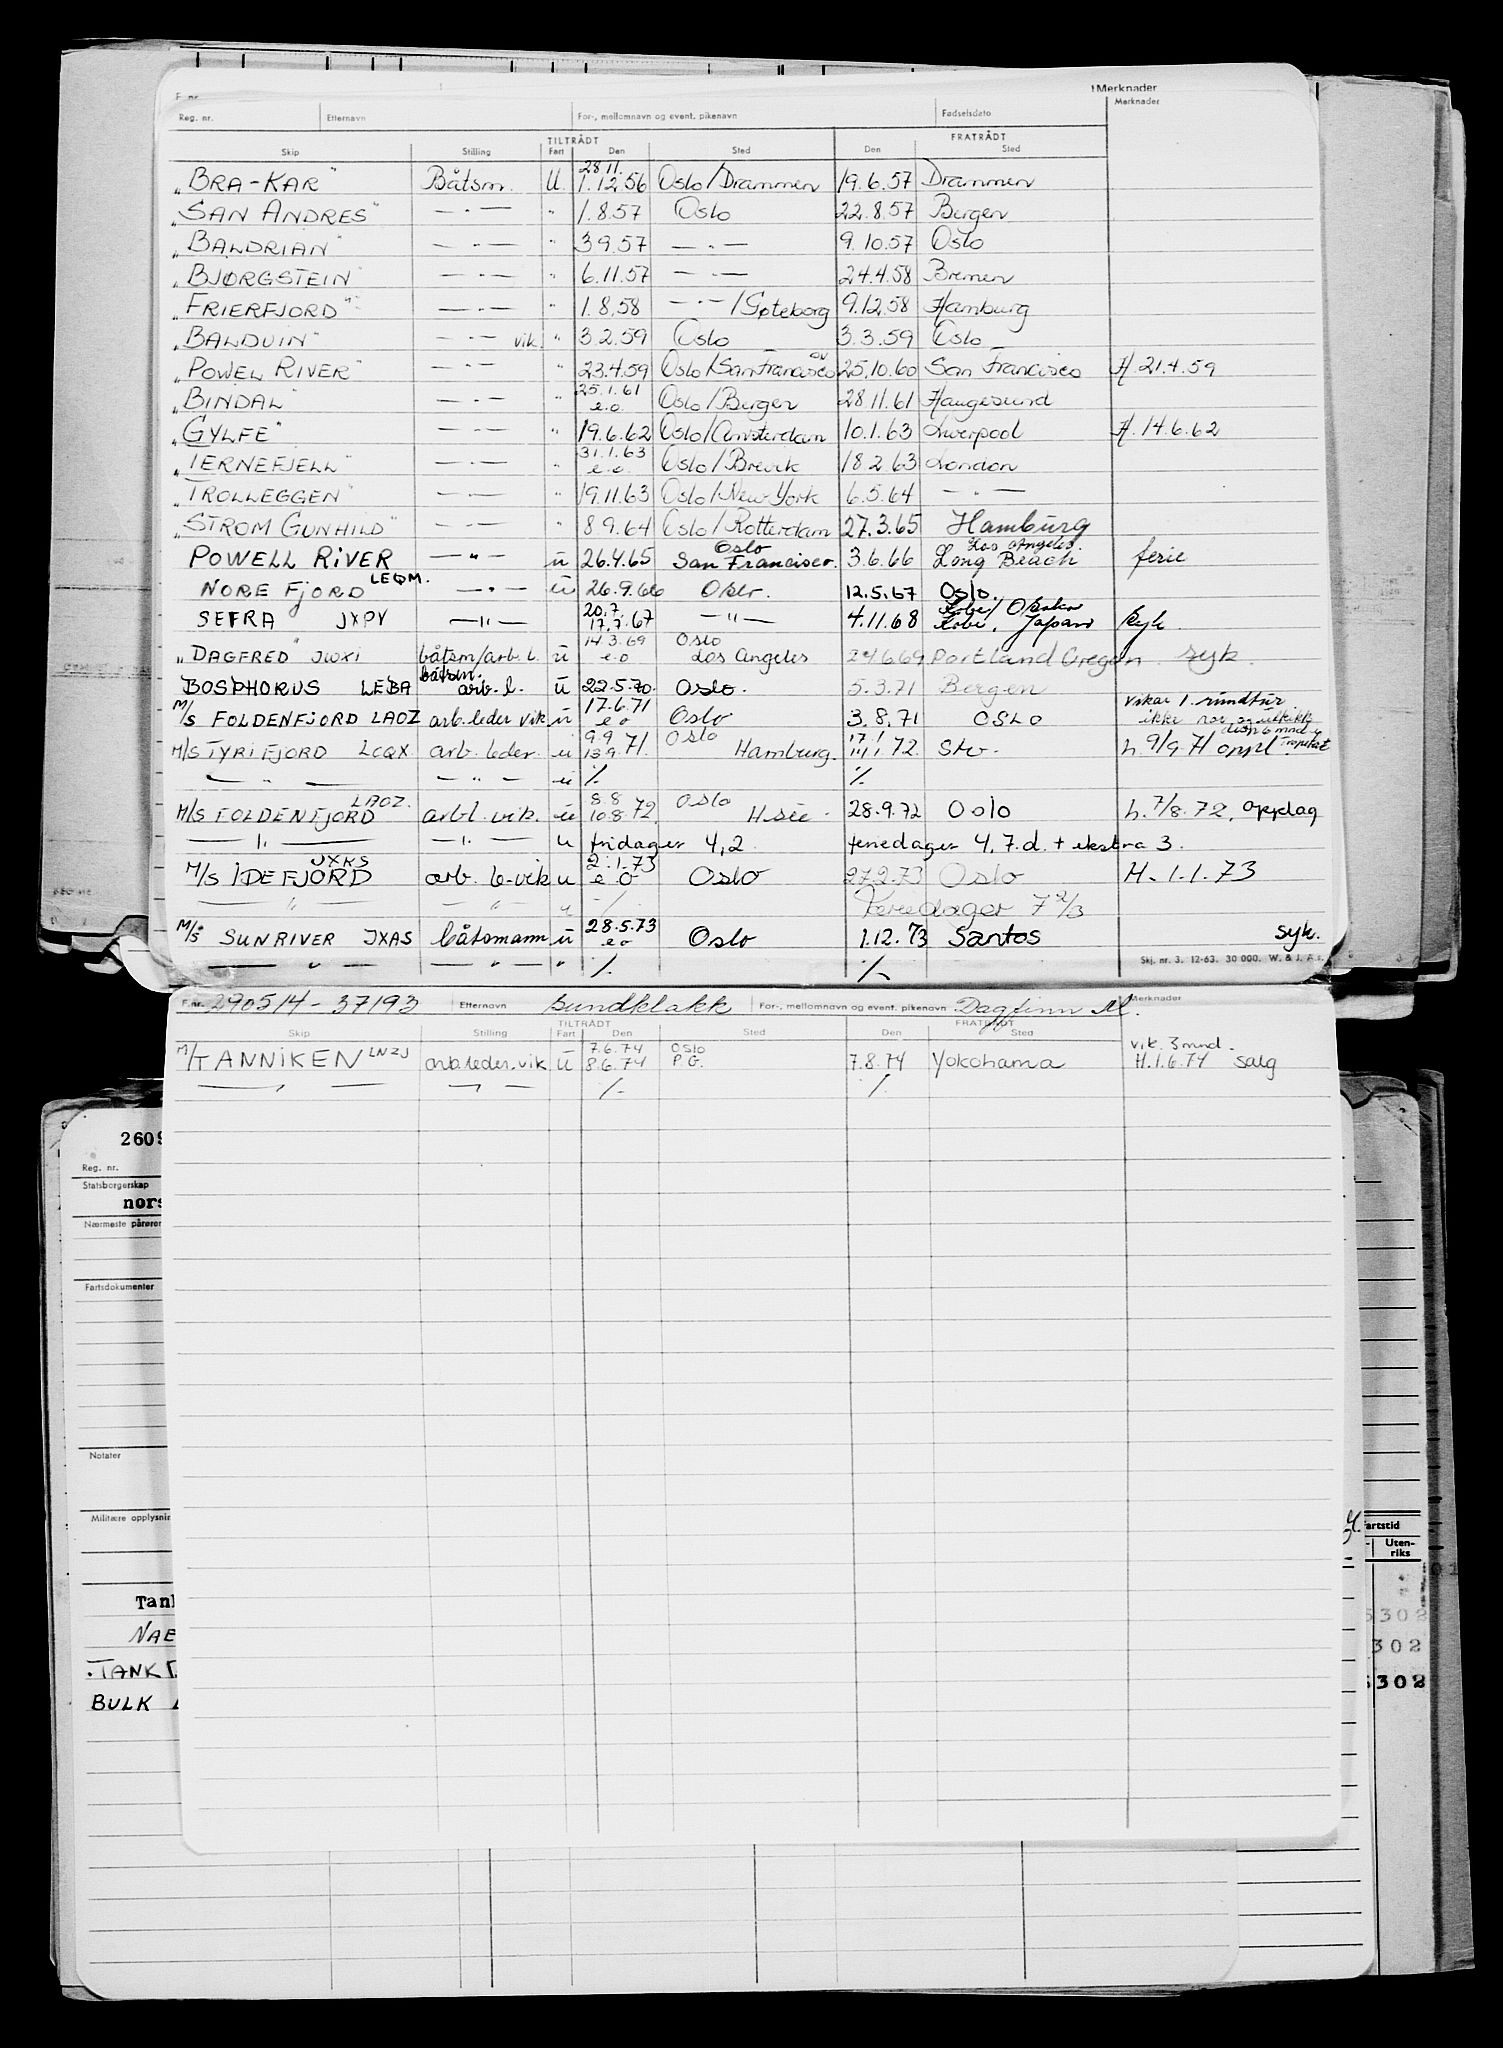 F. nr.
Merknader
Reg. nr. Etternavn For-, mellomnavn og event. pikenavn Fødselsdato Merknader
TILTRÅDT FRATRÅDT
Skip Stilling Fart Den Sted Den Sted
28.11.
"BRA-KAR" Båtsm. U. 1.12.56 Oslo/Drammen 19.6.57 Drammen
"SAN ANDRES" — " — " 1.8.57 Oslo 22.8.57 Bergen
"BALDRIAN" — " — " 3.9.57 — " — 9.10.57 Oslo
"BJØRGSTEIN" — " — " 6.11.57 — " — 24.4.58 Bremen
"FRIERFJORD" — " — " 1.8.58 — " — /Gøteborg 9.12.58 Hamburg
"BALDUIN" — " — vik. " 3.2.59 Oslo 3.3.59 Oslo
"POWEL RIVER" — " — " 23.4.59 Oslo/San Francisco 25.10.60 San Francisco H 21.4.59
25.1.61
"BINDAL" — " — " e.o. Oslo/Bergen 28.11.61 Haugesund
"GYLFE" — " — " 19.6.62 Oslo/Amsterdam 10.1.63 Liverpool H. 14.6.62
31.1.63
"TERNEFJELL" — " — " e.o. Oslo/Brevik 18.2.63 London
"TROLLEGGEN" — " — " 19.11.63 Oslo/New York 6.5.64 — " —
"STROM GUNHILD" — " — " 8.9.64 Oslo/Rotterdam 27.3.65 Hamburg
Oslo Los Angeles.
POWELL RIVER — " — u 26.4.65 San Francisco. 3.6.66 Long Beach ferie
NORE FJORD LEQM. — " — u 26.9.66 Oslo. 12.5.67 Oslo.
20.7. Kobe/Osaka
SEFRA JXPV — " — 17.7.67 — " — 4.11.68 Kobe, Japan syk.
14.3.69 Oslo
"DAGFRED" JWXI båtsm/arb.l. u e.o Los Angeles 24.6.69 Portland Oregon syk.
båtsm.
BOSPHORUS LEBA arb.l. u 22.5.70. Oslo. 5.3.71 Bergen
17.6.71 vikar 1. rundtur
M/S FOLDENFJORD LAOZ arb.leder vik u e o Oslo 3.8.71 OSLO ikke ror og utkikk
9.9 Oslo 17.1 disp 6 mnd
M/S TYRIFJORD LCQX arb. leder. u 13.9.71. Hamburg. 11.1.72. Stv. h. 9/9.71 oppl
— " — — " — u ./. ./.
LAOZ. 8.8 Oslo
M/S FOLDENFJORD arbl. vik. u 10.8.72. H.sie. 28.9.72 Oslo h. 7/8.72. oppdag
— " — — " — u fridager 4,2 feriedager 4,7.d. + ekstra 3.
JXKS 2.1.73
M/S IDEFJORD arb. l-vik u e o Oslo 27.2.73 Oslo H. 1.1.73
— " — — " — u ./. Feriedager 7 2/3
28.5.73
M/S SUNRIVER JXAS båtsmann u e o Oslo 1.12.73 Santos syk.
— " — — " — " ./. ./. Skj. nr. 3. 12-63. 30 000. W. & J. A.s.
F.nr. 290514-37193 Etternavn Sundklakk For-, mellomnavn og event. pikenavn Dagfinn M. Merknader
TILTRÅDT FRATRÅDT
Skip Stilling Fart Den Sted Den Sted
7.6.74 OSLO vik. 3 mnd.
M/T ANNIKEN LNZJ arb.leder.vik u 8.6.74 P.G. 7.8.74 Yokohama H.1.6.74 salg
— " — — " — ./. ./.
2609
Reg. nr.
Statsborgerskap
nors
Nærmeste pårører
Fartsdokumenter
Notater
Militære opplysnin
artstid
Uten-
riks
Tank
NAE
302
TANK
302
BULK
302